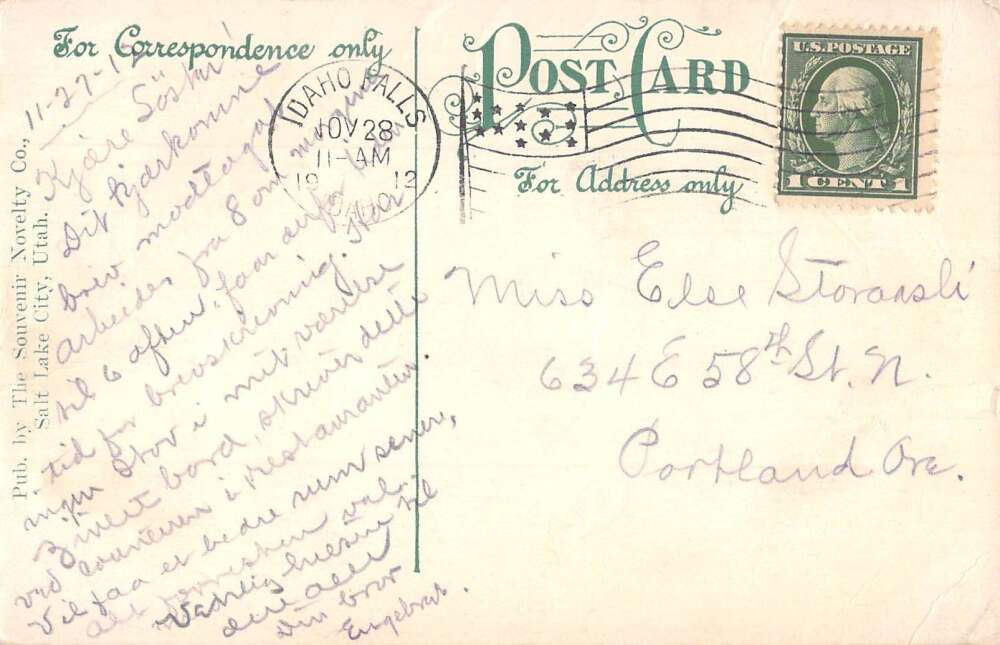 For Correspondence only
POST CARD
For Address only
U.S. POSTAGE
1 CENT 1
IDAHO FALLS
NOV 28
11-AM
19 12
IDAHO
Pub. by The Souvenir Novelty Co.,
Salt Lake City, Utah.
11-27-1
Kjære Söster
Dit kjærkomne
brev modtaget
arbeider fra 8 om morgen
til 6 aften, faar
tid for brevskrivning. Har
ingen Stov i mit værelse
bord, skriver dette
ved i restauranten
Vil faa et bedre rum senere,
alt forresten vel.
Venlig hilsen til
dere alle
Din bror
Engebret.
Miss Else Storaasli
634 E 58th St. N.
Portland Ore.